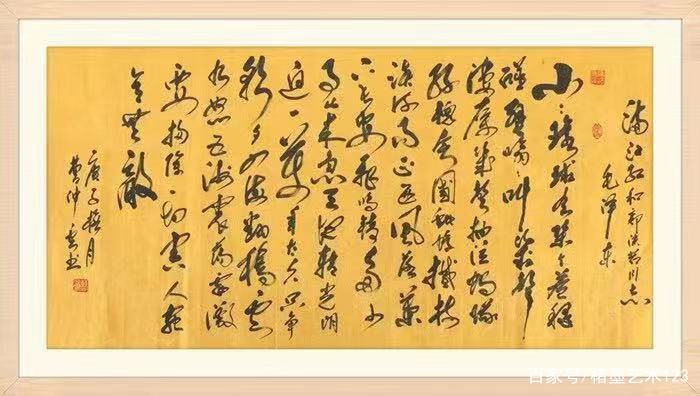 满江红和郭沫若同志
毛泽东
小小环球有几个苍蝇
碰壁嗡嗡叫几声
凄厉几声抽泣蚂蚁
缘槐夸大国蚍蜉撼树
谈何易正西风落叶
下长安飞鸣镝多少
事从来急天地转光阴
迫一万年太久只争
朝夕四海翻腾云
水怒五洲震荡风雷激
要扫除一切害人虫
全无敌
庚子梅月
仲书
百家号/楮墨艺术123